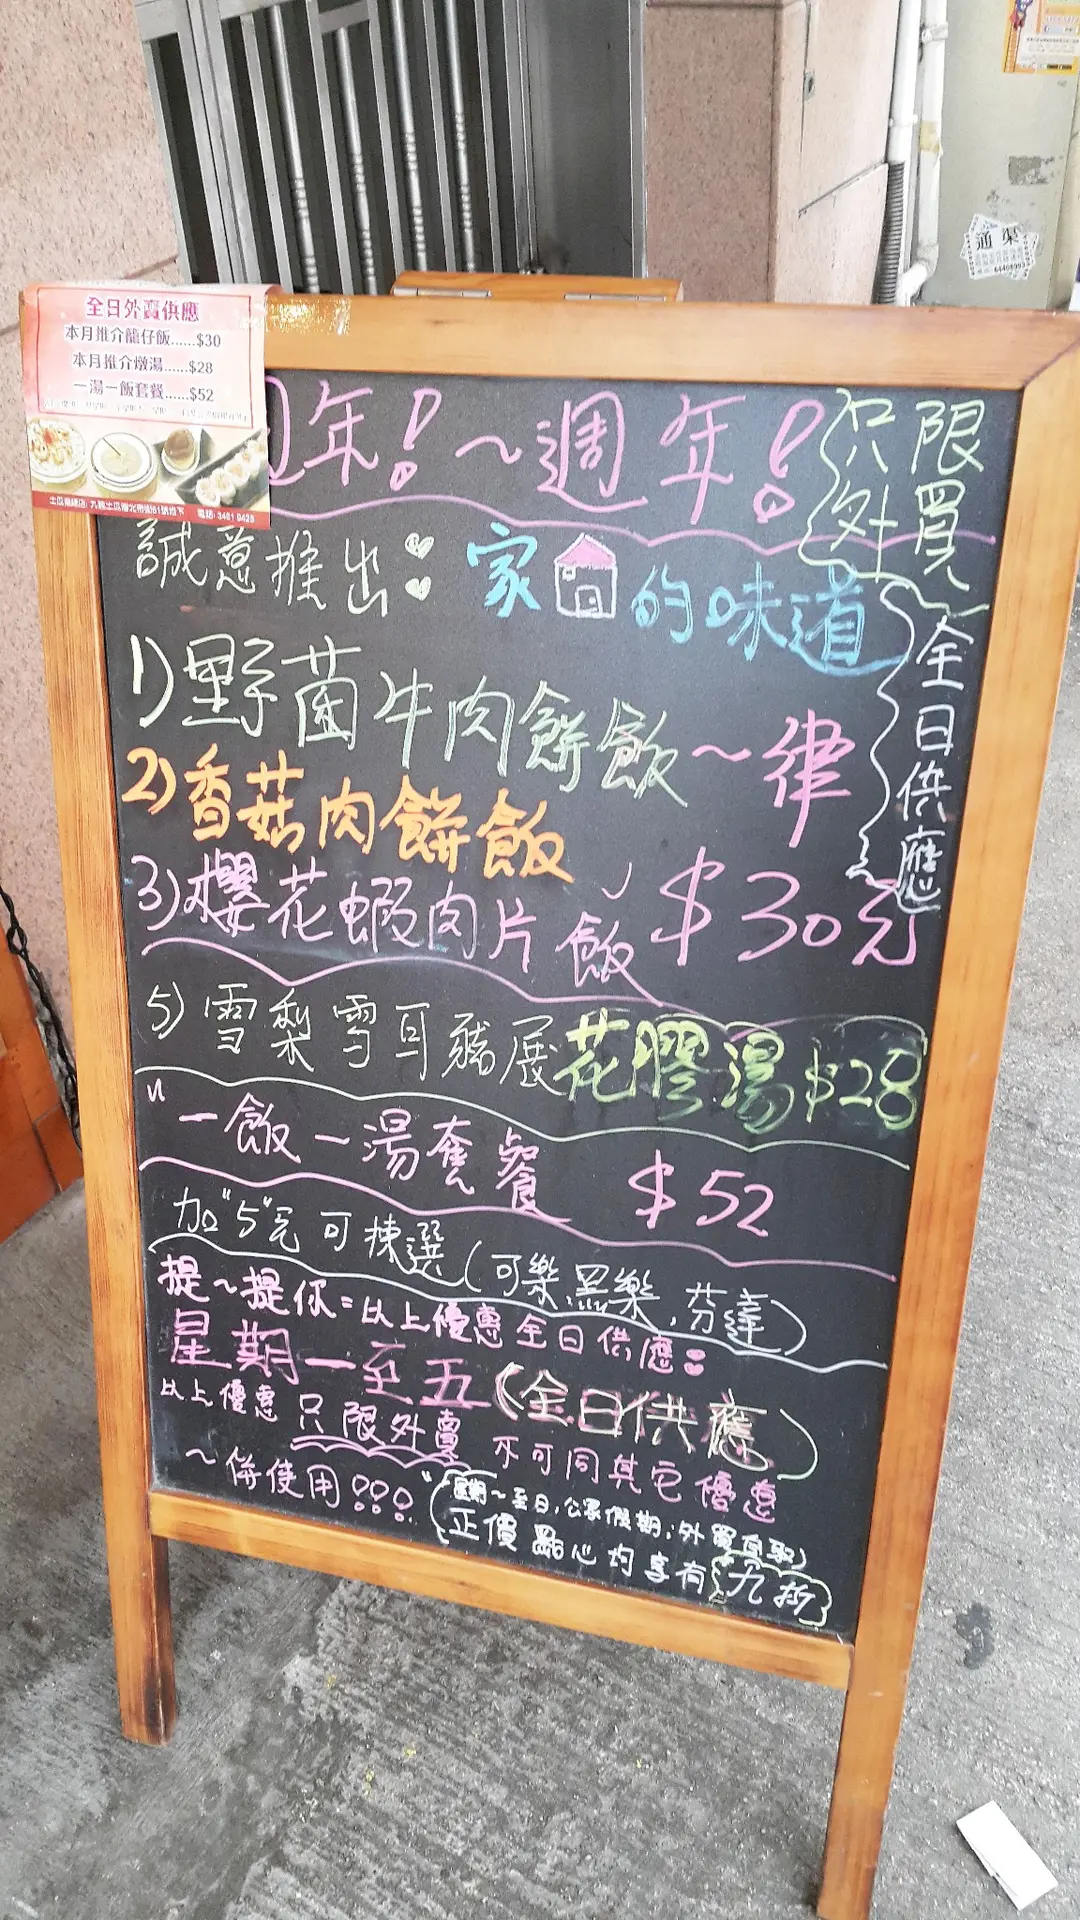 全日外賣供應
本月推介籠仔飯......$30
本月推介燉湯......$28
一湯一飯套餐......$52
電話: 3481 9428
週年！～週年！
只限
外買
誠意推出 家 的味道
全日供應
1)野菌牛肉餅飯～律
2)香菇肉餅飯
3)櫻花蝦肉片飯 $30元
5)雪梨雪耳豬展花膠湯 $28
一飯一湯套餐 $52
加"5"元可揀選(可樂,黑樂,芬達)
提～提你=以上優惠全日供應
星期一至五(全日供應)
以上優惠只限外賣 不可同其它優惠
～併使用!!!
(星期～至日,公眾假期,外買自取)
正價點心均享有九折
通渠